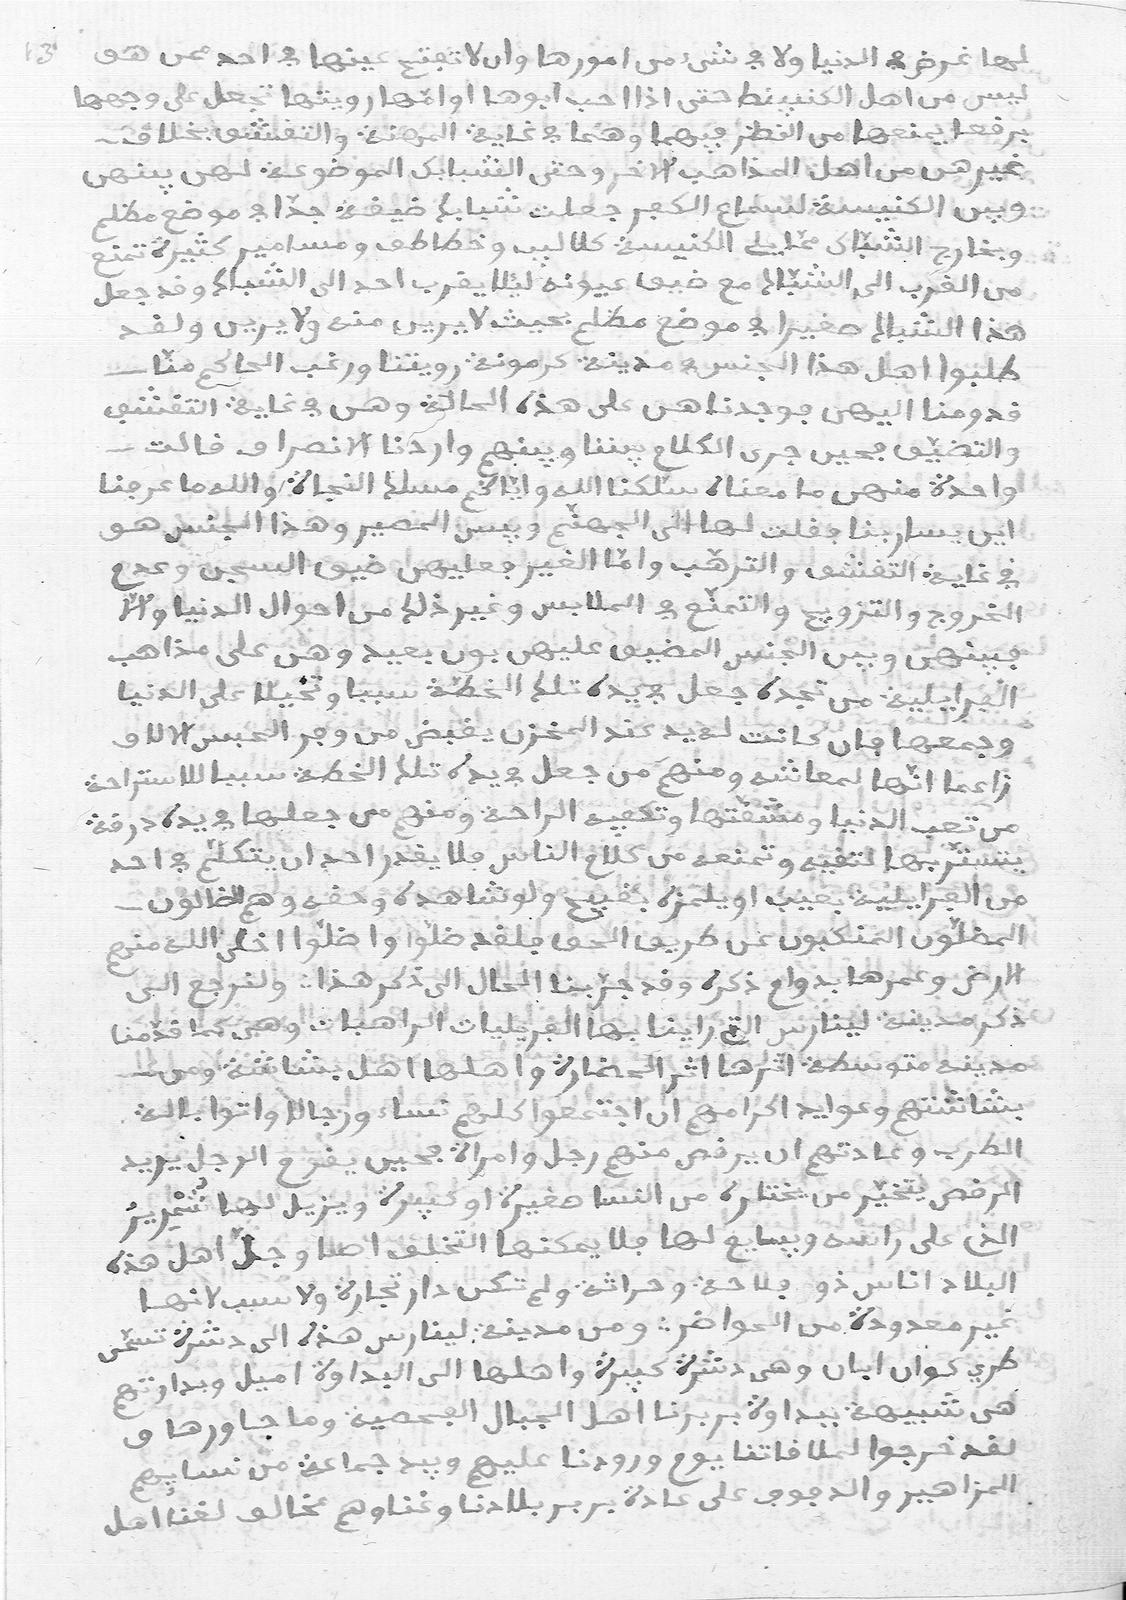 13
لها غرض في الدنيا ولا في شيء من امورها وان لا تفتح عينها في احد ممن هو
ليس من اهل الكنبينط حتى اذا احب ابوها او امها رويتها تجعل على وجهها
برقعا يمنعها من النظر فيهما وهما في غاية المهنة والتقشف بخلاف
غيرهن من اهل المذاهب الاخر وحتى الشبابك الموضوعة لهن بينهن
وبين الكنيسة لسماع الكفر جعلت شبابك ضيقة جدا في موضع مظلم
وبخارج الشباك مما يلي الكنيسة كلالب وخطاطف ومسامير كثيرة تمنع
من القرب الى الشباك مع ضيق عيونه ليلا يقرب احد الى الشباك وقد جعل
هذا الشباك صغيرا في موضع مظلم بحيث لا يرين منه ولا يرين ولقد
طلبوا اهل هذا الجنس في مدينة كرمونة رويتنا ورغب الحاكم منا
قدومنا اليهن فوجدناهن على هذه الحالة وهن في غاية التقشف
والتضيق فحين جرى الكلام بيننا وبينهم واردنا الانصراف قالت
واحدة منهن ما معناه سلكنا الله واياكم مسلك النجاة والله ما عرفنا
اين يسار بنا فقلت لها الى الجهنم وبيس المصير وهذا الجنس هو
في غاية التقشف والترهب واما الغير فعليهن ضيق السجن وعدم
الخروج والتزويج والتمتع في الملابس وغير ذلك من احوال الدنيا والا
فبينهن وبين الجنس المضيق عليهن بون بعيد وهن على مذاهب
الفرايلية من تجده جعل في يده تلك الخطة سببا وتحيلا على الدنيا
وجمعها فان كانت له يد عند المخزن يقبض من وفر الحبس الالاف
زاعما انها لمعاشه ومنهم من جعل في يده تلك الخطة سببا للاستراحة
من تعب الدنيا ومشقتها وتكفيه الراحة ومنهم من جعلها في يده درقة
يتستر بها لتقيه وتمنعه من كلام الناس فلا يقدر احد ان يتكلم في احد
من الفرايلية بعيب او يلمزه بقبيح ولو شاهده وحقه وهم الضالون
المضلون المنكبون عن طريق الحق فلقد ضلوا واضلوا اخلى الله منهم
الارض وعمرها بدوام ذكره وقد جر بنا الحال الى ذكر هذا ولنرجع الى
ذكر مدينة لينارس التي راينا بها الفريليات الراهبات وهي كما قدمنا
مدينة متوسطة اثرها اثر الحضارة واهلها اهل بشاشة ومن
بشاشتهم وعوايد اكرامهم ان اجتمعوا كلهم نساء ورجالا واتوا بالة
الطرب وعادتهم ان يرقص منهم رجل وامراة فحين يقوم الرجل يريد
الرقص يتخير من يختاره من النسا صغيرة او كبيرة ويزيل لها شمرير
الذي على راسه ويبايع لها فلا يمكنها التخلف اصلا وجل اهل هذه
البلاد اناس ذو فلاحة وحراثة ولم تكن دار تجارة ولا سبب لانها
غير معدودة من الحواضر ومن مدينة لينارس هذه الى دشرة تسمى
طري كوان ابان وهي دشرة كبيرة واهلها الى البداوة اميل وبداوتهم
هي شبيهة ببداوة بربرنا اهل الجبال الفحصية وما جاورها و
لقد خرجوا لملاقاتنا يوم ورودنا عليهم وبيد جماعة من نسايهم
المزاهير والدفوف على عادة بربر بلادنا وغناوهم مخالف لغنا اهل